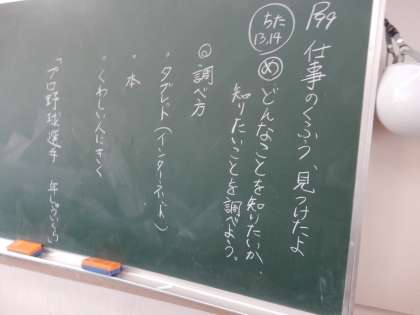 P99 仕事のくふう、見つけたよ
ちた
13,14
め どんなことを知りたいか、
知りたいことを調べよう。
◎調べ方
・タブレット(インターネット)
・本
・くわしい人にきく
「プロ野球選手 年しゅういくら」